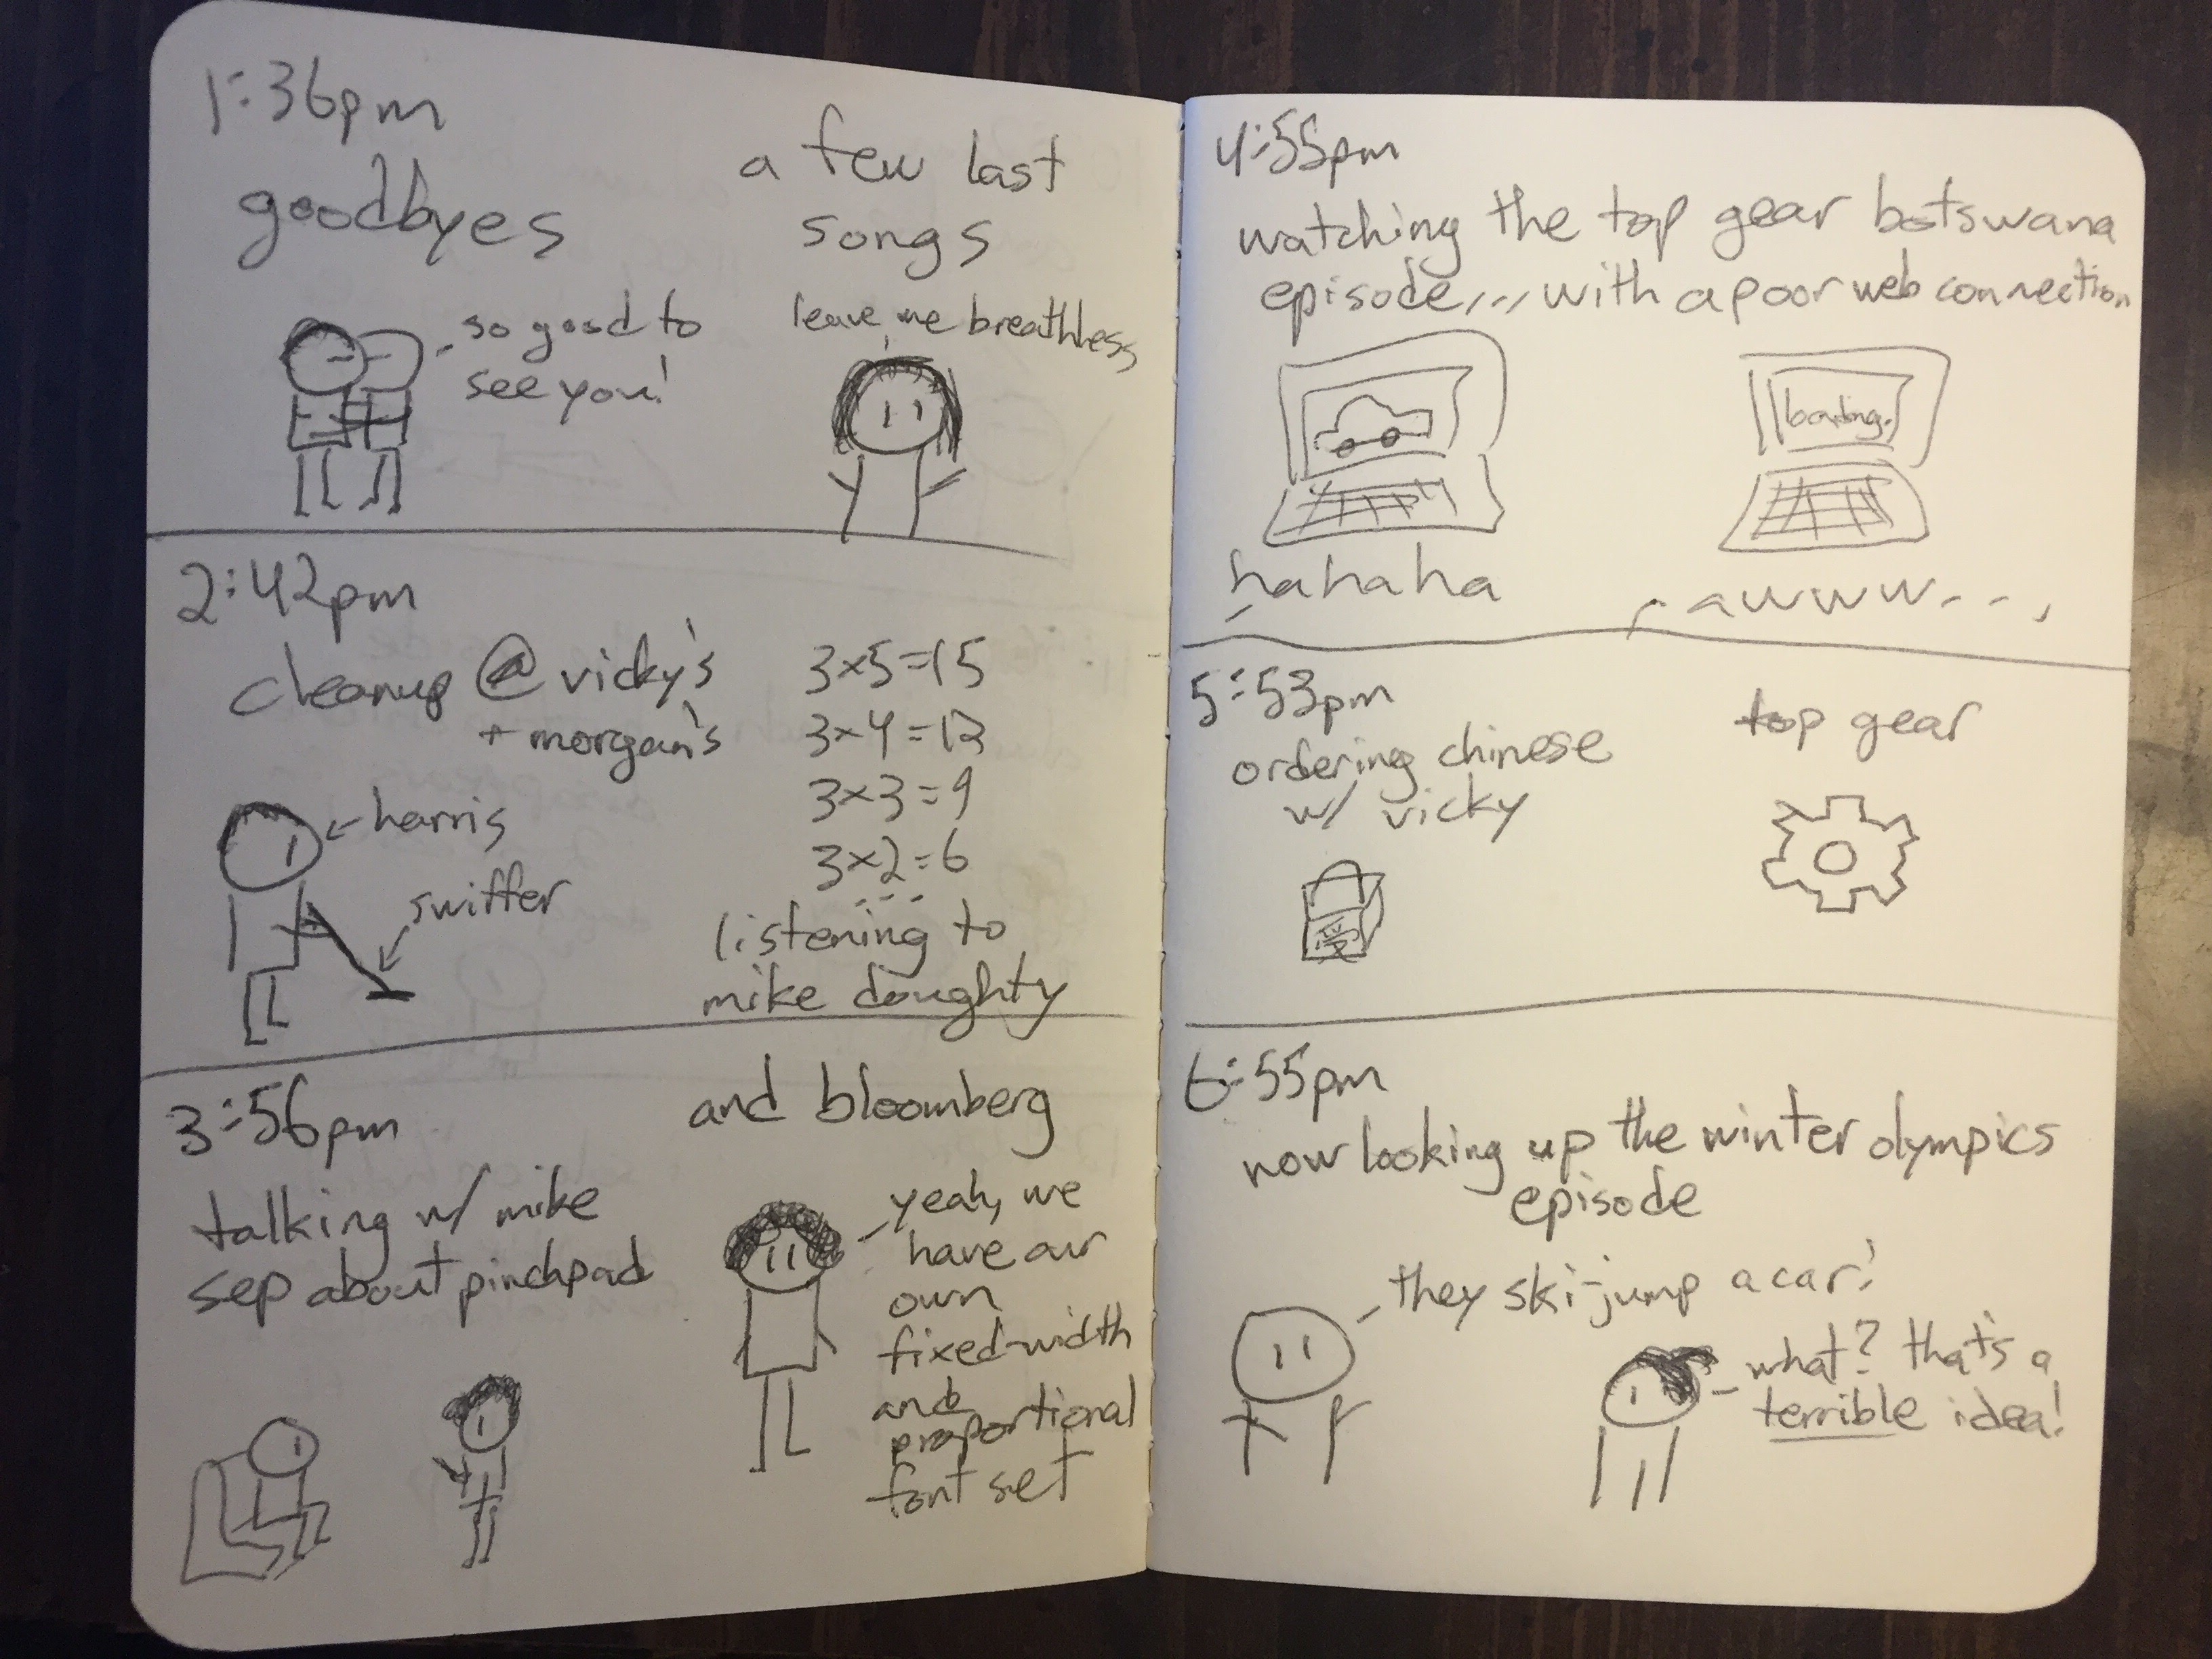 1:36pm
goodbyes
so good to
see you!
a few last
songs
leave me breathless
2:42pm
cleanup @ vicky's
+ morgan's
harris
swiffer
3×5=15
3×4=12
3×3=9
3×2=6
...
listening to
mike doughty
3:56pm
talking w/ mike
sep about pinchpad
and bloomberg
yeah, we
have our
own
fixed-width
and
proportional
font set
4:55pm
watching the top gear botswana
episode... with a poor web connection
loading.
hahaha
awww...
5:53pm
ordering chinese
w/ vicky
top gear
6:55pm
now looking up the winter olympics
episode
they ski-jump a car!
what? that's a
terrible idea!